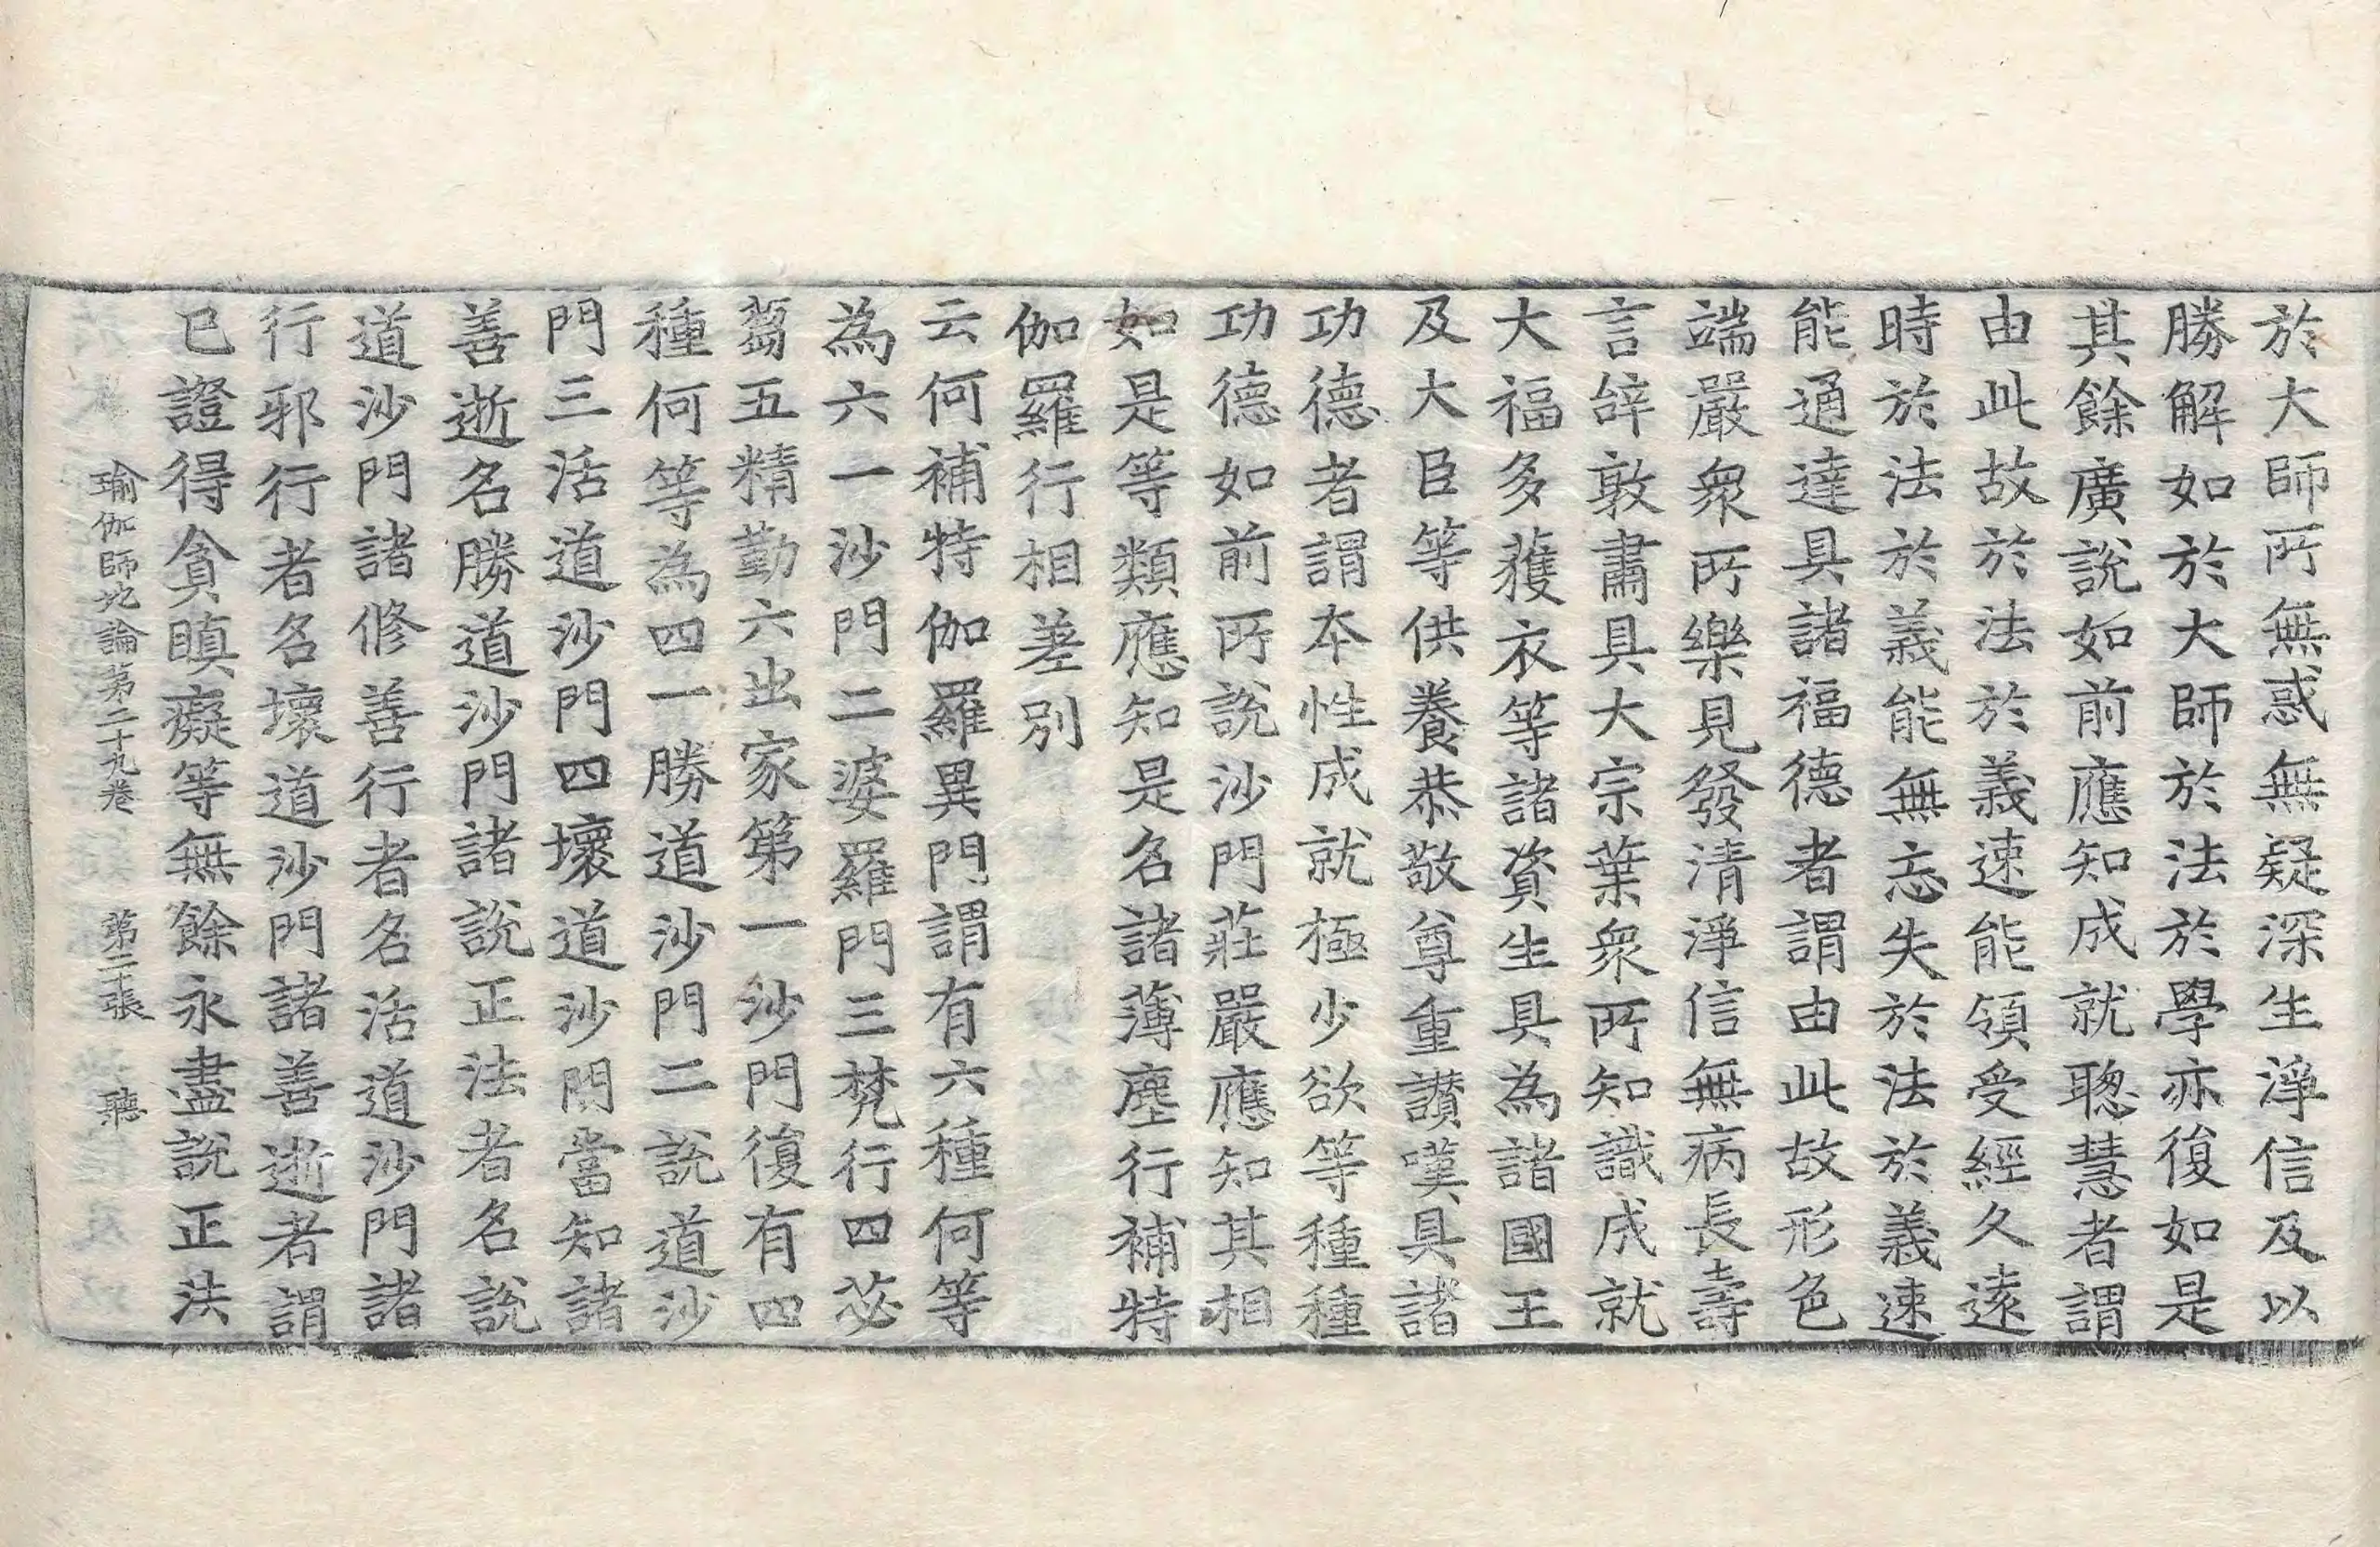 於大師所無惑無疑深生淨信及以
勝解如於大師於法於學亦復如是
其餘廣說如前應知成就聰慧者謂
由此故於法於義速能領受經久遠
時於法於義能無忘失於法於義速
能通達具諸福德者謂由此故形色
端嚴衆所樂見發清淨信無病長壽
言辝敦肅具大宗葉衆所知識成就
大福多獲衣等諸資生具為諸國王
及大臣等供養恭敬尊重讃嘆具諸
功德者謂本性成就極少欲等種種
功德如前所說沙門莊嚴應知其相
如是等類應知是名諸薄塵行補特
伽羅行相差別
云何補特伽羅異門謂有六種何等
為六一沙門二婆羅門三梵行四苾
蒭五精勤六出家第一沙門復有四
種何等為四一勝道沙門二說道沙
門三活道沙門四壞道沙門當知諸
善逝名勝道沙門諸說正法者名說
道沙門諸修善行者名活道沙門諸
行邪行者名壞道沙門諸善逝者謂
已證得貪瞋癡等無餘永盡說正法
瑜伽師地論第二十九卷 第二十張 聽